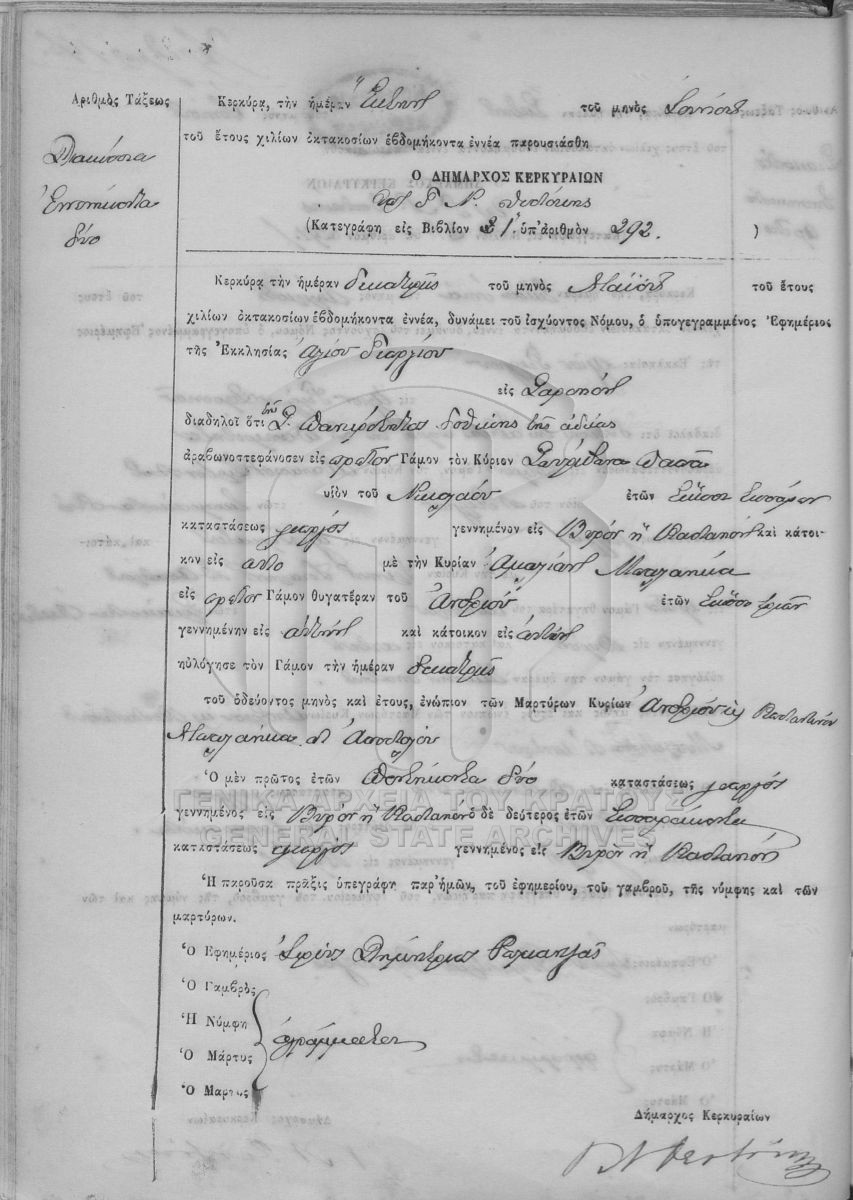 Ἀριθμὸς Τάξεως
Διακόσια
Ἐννενήκοντα
δύο
Κερκύρα, τὴν ἡμέραν Ἕκτην τοῦ μηνὸς Ἰουνίου
τοῦ ἔτους χιλίων ὀκτακοσίων ἑβδομήκοντα ἐννέα παρουσιάσθη
Ο ΔΗΜΑΡΧΟΣ ΚΕΡΚΥΡΑΙΩΝ
Ν. Θεοτόκης
(Κατεγράφη εἰς Βιβλίον 31 ὑπ' ἀριθμὸν 292. )
Κερκύρα τὴν ἡμέραν δεκατρεῖς τοῦ μηνὸς Μαΐου τοῦ ἔτους
χιλίων ὀκτακοσίων ἑβδομήκοντα ἐννέα, δυνάμει τοῦ ἰσχύοντος Νόμου, ὁ ὑπογεγραμμένος Ἐφημέριος
τῆς Ἐκκλησίας Ἁγίου Γεωργίου
εἰς
διαδηλοῖ ὅτι Σ. Πανιερότητος δοθείσης τῆς ἀδείας
ἀραβωνοστεφάνοσεν εἰς πρῶτον Γάμον τὸν Κύριον
υἱὸν τοῦ Νικολάου ἐτῶν Εἴκοσι τεσσάρων
καταστάσεως γεωργὸς γεννημένον εἰς ἢ καὶ κάτοι-
κον εἰς αὐτὸ μὲ τὴν Κυρίαν Ἀμαλίαν
εἰς πρῶτον Γάμον θυγατέραν τοῦ Ἀνδρέου ἐτῶν Εἴκοσι τριῶν
γεννημένην εἰς αὐτὴν καὶ κάτοικον εἰς αὐτὴν
ηὐλόγησε τὸν Γάμον τὴν ἡμέραν δεκατρεῖς
τοῦ ὁδεύοντος μηνὸς καὶ ἔτους, ἐνώπιον τῶν Μαρτύρων Κυρίων
Ἀποστόλου
Ὁ μὲν πρῶτος ἐτῶν Πεντήκοντα δύο καταστάσεως γεωργὸς
γεννημένος εἰς ἢ ὁ δὲ δεύτερος ἐτῶν Τεσσαράκοντα
καταστάσεως γεωργὸς γεννημένος εἰς ἢ
Ἡ παροῦσα πρᾶξις ὑπεγράφη παρ' ἡμῶν, τοῦ ἐφημερίου, τοῦ γαμβροῦ, τῆς νύμφης καὶ τῶν
μαρτύρων.
Ὁ Ἐφημέριος Ἱερεὺς Δημήτριος
Ὁ Γαμβρὸς
Ἡ Νύμφη
ἀγράμματοι
Ὁ Μάρτυς
Ὁ Μάρτυς
Δήμαρχος Κερκυραίων
ΓΕΝΙΚΑ ΑΡΧΕΙΑ ΤΟΥ ΚΡΑΤΟΥΣ
GENERAL STATE ARCHIVES